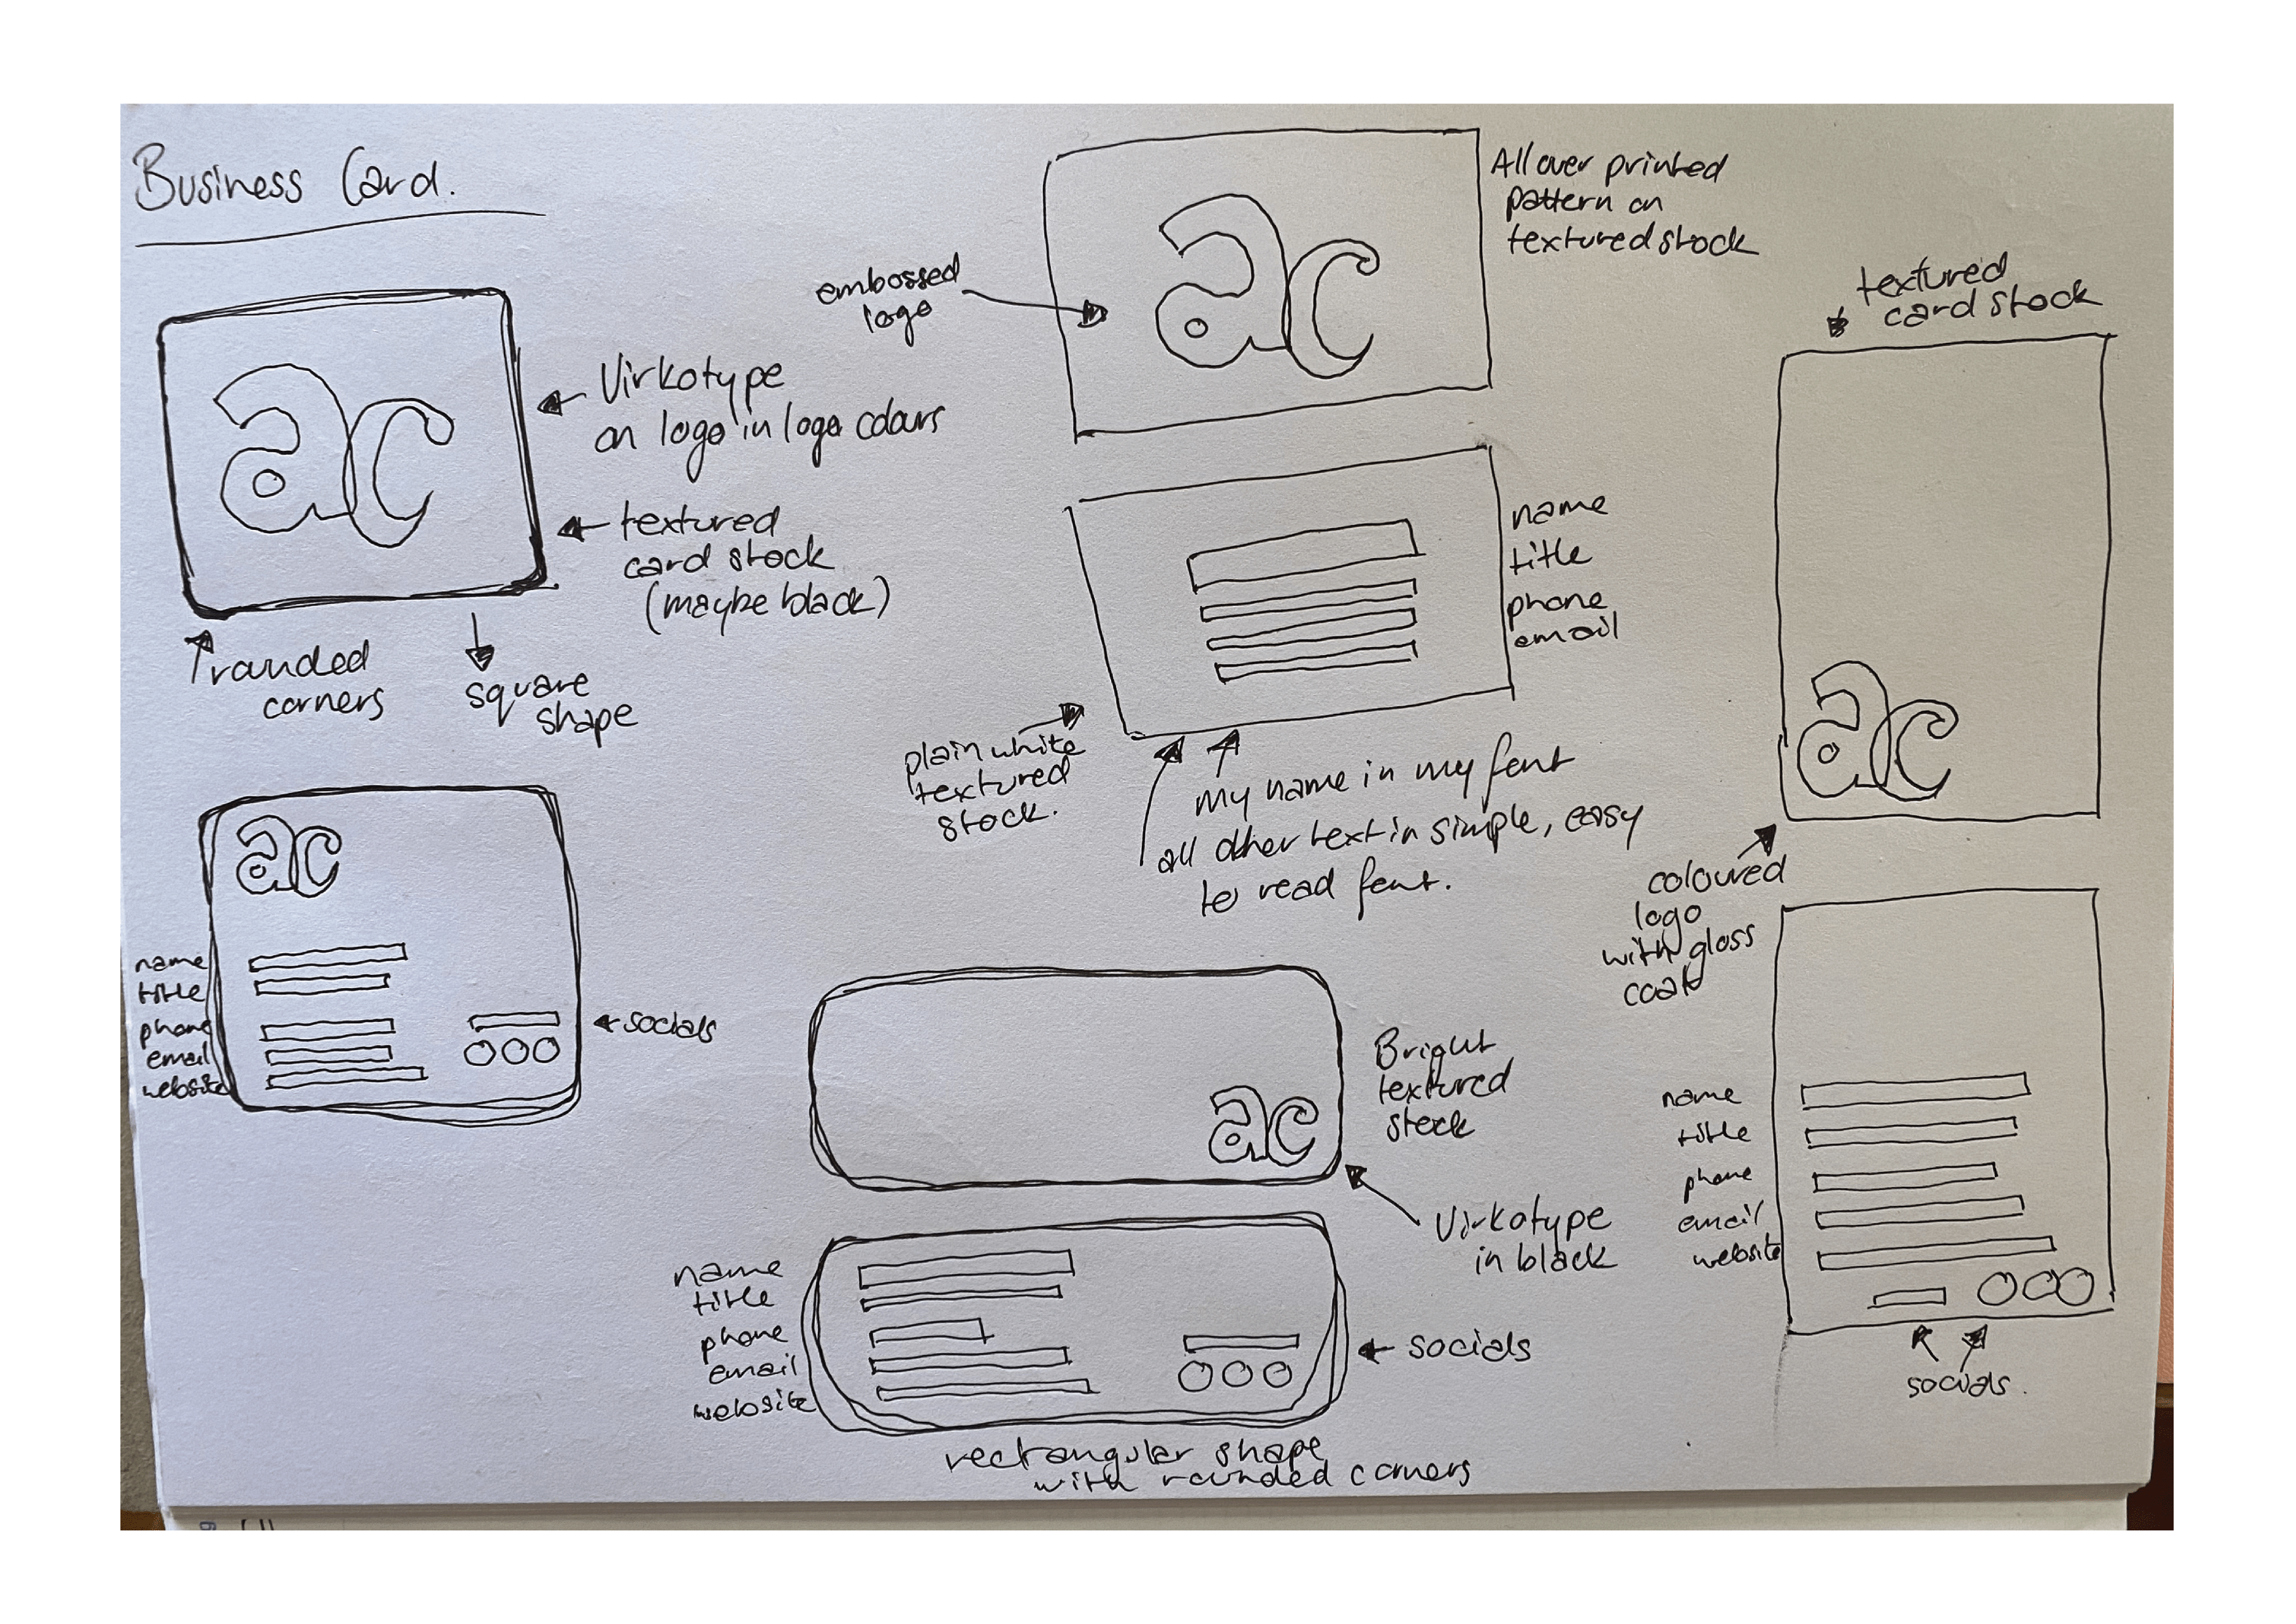 Business Card.
ac
Virkotype
on logo in logo colours
textured
card stock
(maybe black)
rounded
corners
square
shape
ac
name
title
phone
email
website
socials
embossed
logo
ac
All over printed
pattern on
textured stock
name
title
phone
email
plain white
textured
stock.
my name in my font
all other text in simple, easy
to read font.
ac
Bright
textured
stock
Virkotype
in black
name
title
phone
email
website
socials
rectangular shape
with rounded corners
textured
card stock
ac
coloured
logo
with gloss
coat
name
title
phone
email
website
socials.